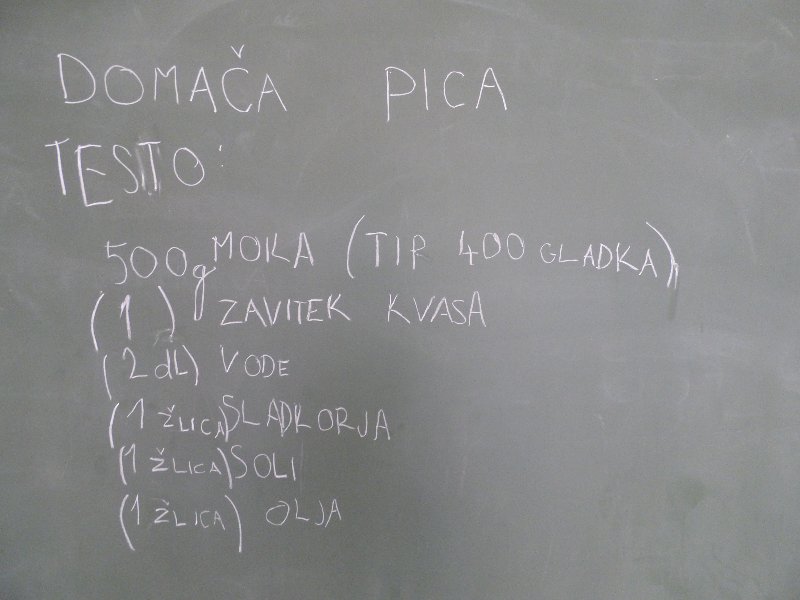 DOMAČA PICA
TESTO:
500g MOKA (TIP 400 GLADKA)
(1) ZAVITEK KVASA
(2 dL) VODE
(1 ŽLICA) SLADKORJA
(1 ŽLICA) SOLI
(1 ŽLICA) OLJA